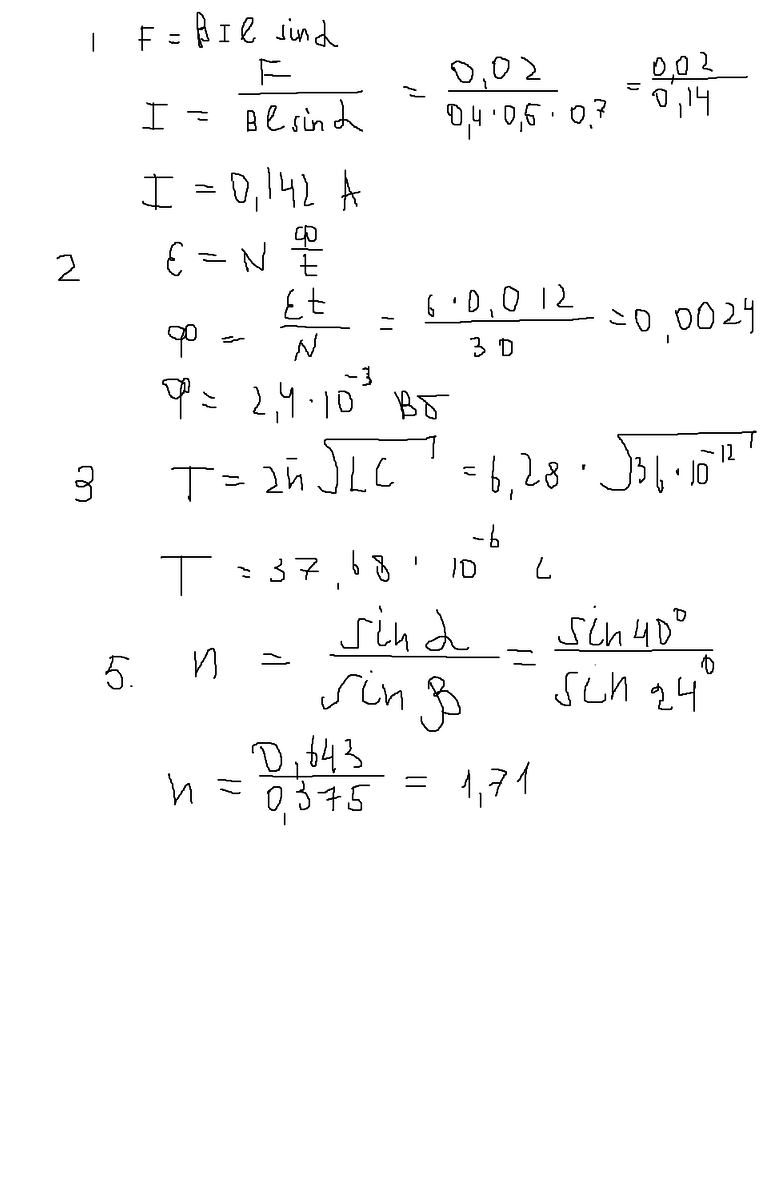 1 F = BIl sinα
I = F / Bl sinα = 0,02 / 0,4 · 0,5 · 0,7 = 0,02 / 0,14
I = 0,142 A
2 ε = N Φ / t
Φ = εt / N = 6 · 0,012 / 30 = 0,0024
Φ = 2,4 · 10⁻³ Вб
3 T = 2π √LC = 6,28 · √36 · 10⁻¹²
T = 37,68 · 10⁻⁶ с
5. n = sin α / sin β = sin 40° / sin 24°
n = 0,643 / 0,375 = 1,71